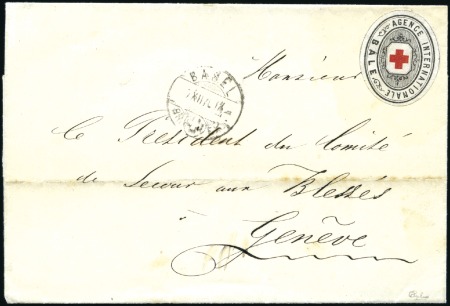 AGENCE INTERNATIONALE
BALE
BASEL
Monsieur
Le Président du Comité
de Secour aux Blessés
à
Genève